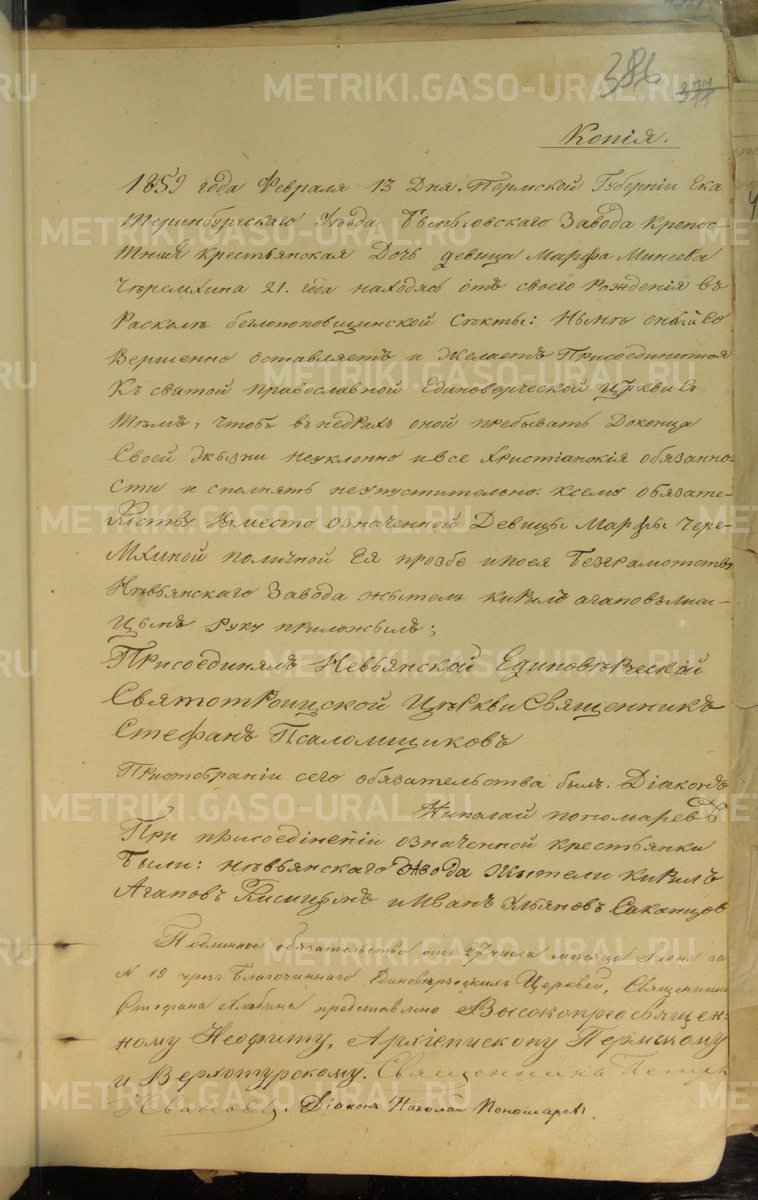 386
377
Копія.
1859 года Февраля 13 Дня. Пермской Губерніи Ека
теринбургскаго Уѣзда Быньговскаго Завода крепос-
тная крестьянская Дочь девица Марфа Минеева
Черемхина 21. года находясь отъ своего Рожденія въ
Расколѣ беглопоповщинской Сѣкты: Нынѣ оный со
вершенно оставляетъ и желаетъ Присоединится
Къ святой православной Единоверческой Церкви Съ
тѣмъ, чтобъ въ недрахъ оной пребывать До конца
Своей жызни неуклонно и все христіанскія обязанно-
сти и сполнять неупустительно. к сему обязате-
льству вместо означенной Девицы Марфы Чере-
мхиной по личной Ея прозбе и по ея безграмотству
Невьянскаго Завода жытель Кирилъ Агаповъ
руку приложылъ;
Присоединялъ Невьянской Единовѣрческой
Святотроицской Церкви Священникъ
Стефанъ Псаломщиковъ
При отобраніи сего обязательства былъ. Діаконъ
Николай Пономаревъ
При присоединеніи означенной крестьянки
были: Невьянскаго Завода жытели Кирилъ
Агаповъ и Иванъ Ульяновъ
Подлинное обязательство отъ 27 числа месяца за
№ 19 чрезъ Благочиннаго Единоверческихъ Церквей, Священника
Стефана представлено Высокопреосвящен-
ному Неофиту, Архіепископу Пермскому
и Верхотурскому. Священникъ Петръ
Ивановъ. Діаконъ Николай Пономаревъ.
METRIKI.GASO-URAL.RU